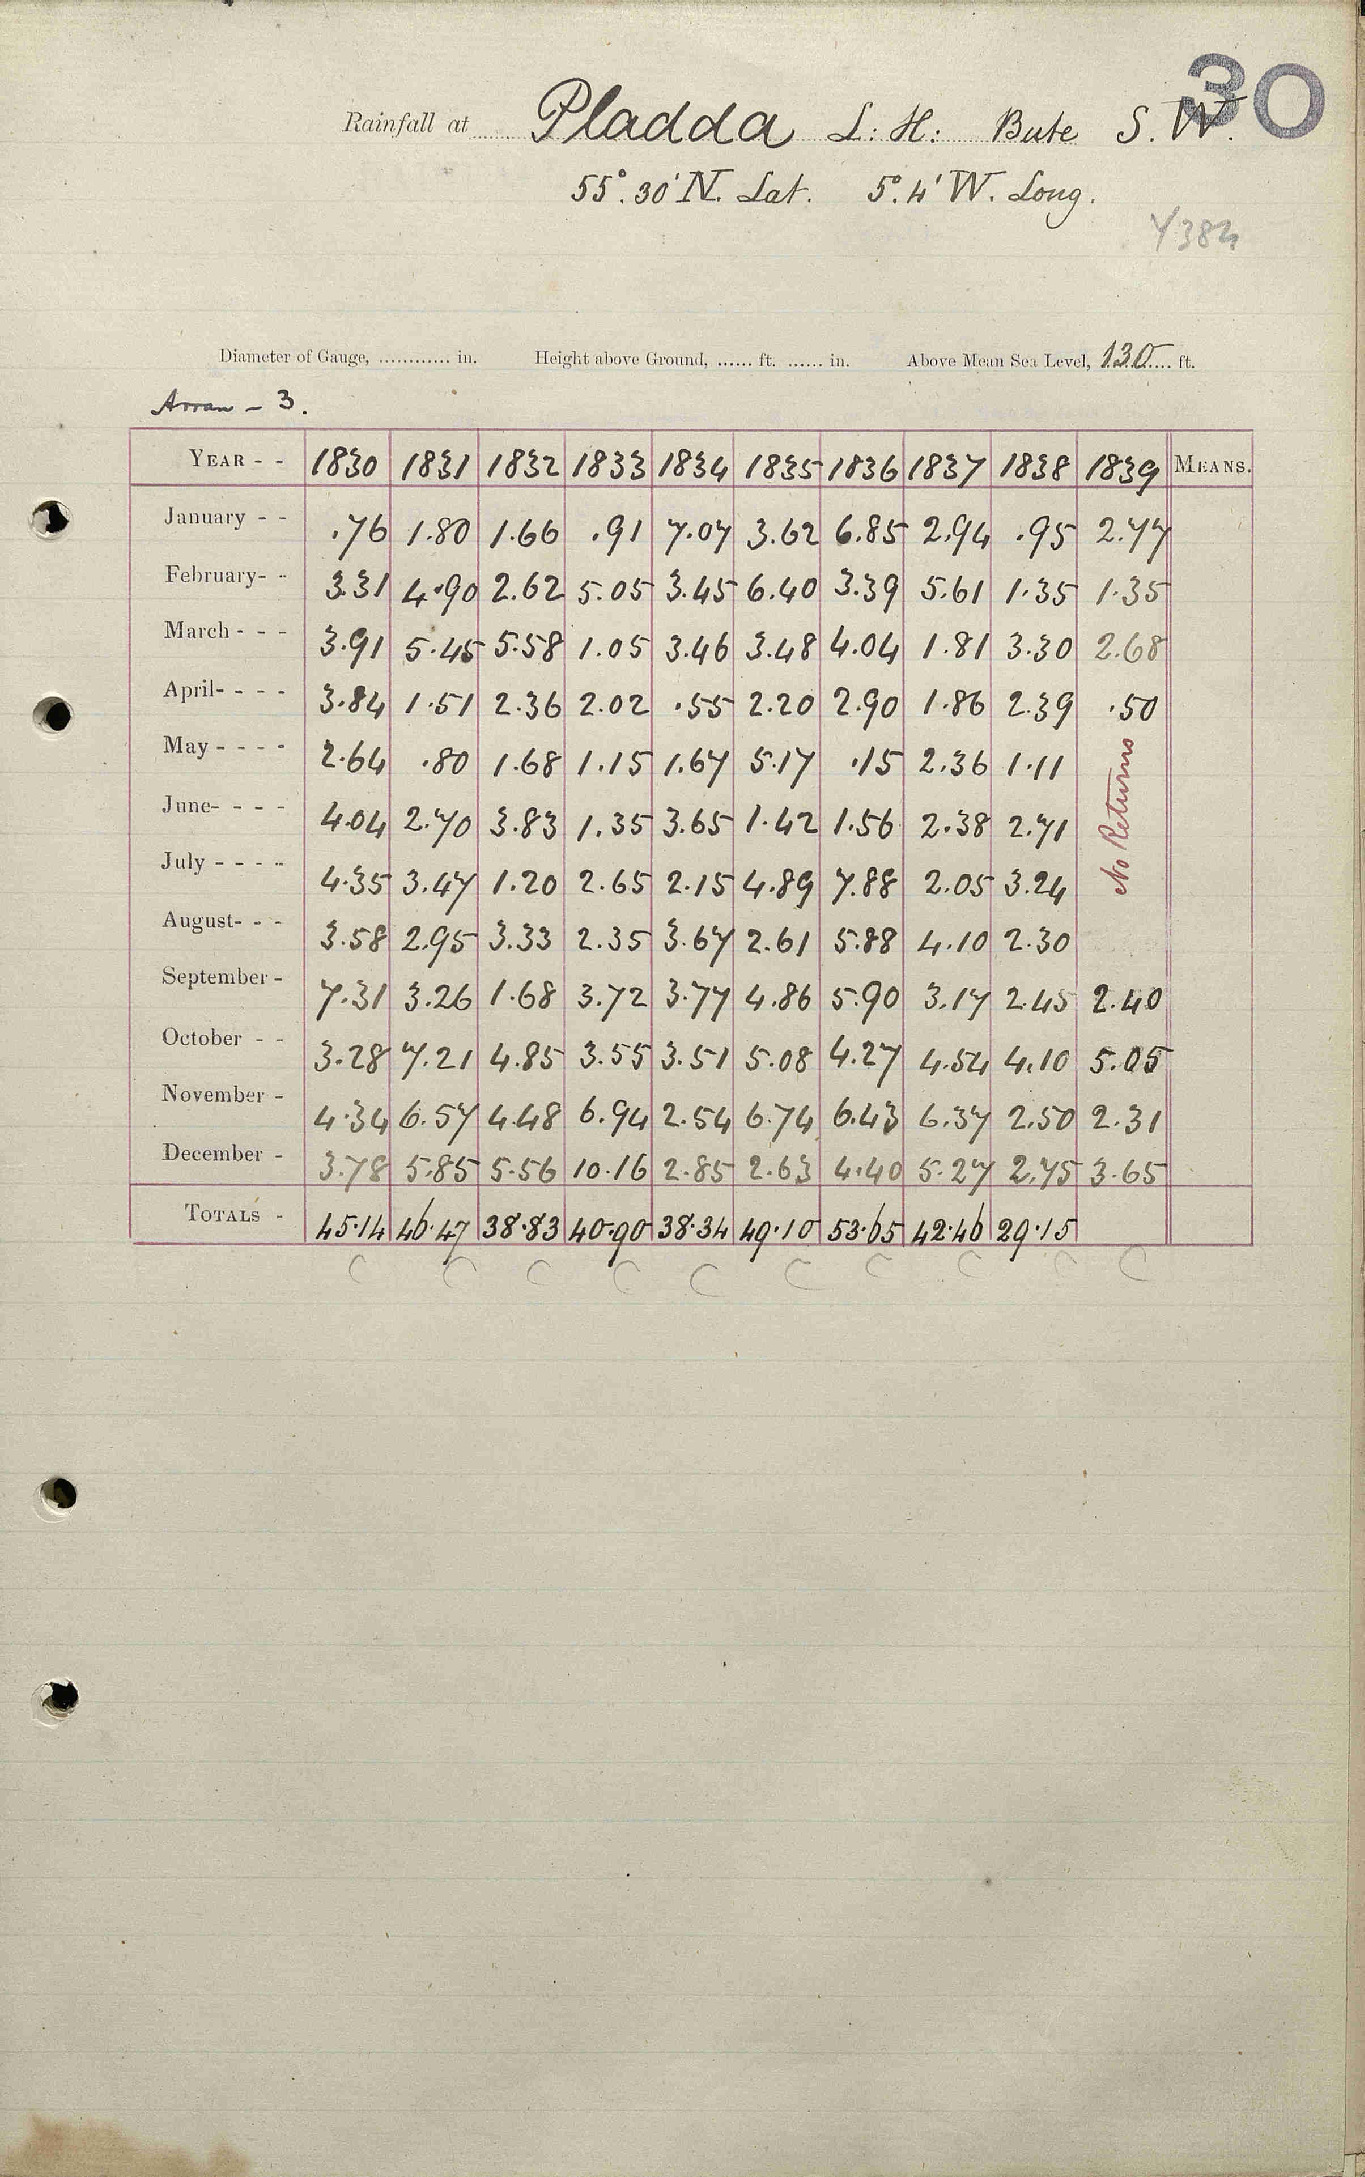 30
Rainfall at Pladda L: H: Bute S. W.
55°. 30' N. Lat. 5°. 4' W. Long.
Diameter of Gauge, ............ in. Height above Ground, ...... ft. ...... in. Above Mean Sea Level, 130 ft.
Arran - 3.
YEAR - - 1830 1831 1832 1833 1834 1835 1836 1837 1838 1839 MEANS.
January - - .76 1.80 1.66 .91 7.07 3.62 6.85 2.94 .95 2.77
February - - 3.31 4.90 2.62 5.05 3.45 6.40 3.39 5.61 1.35 1.35
March - - - 3.91 5.45 5.58 1.05 3.46 3.48 4.04 1.81 3.30 2.68
April - - - - 3.84 1.51 2.36 2.02 .55 2.20 2.90 1.86 2.39 .50
May - - - - 2.64 .80 1.68 1.15 1.67 5.17 .15 2.36 1.11
June - - - - 4.04 2.70 3.83 1.35 3.65 1.42 1.56 2.38 2.71
July - - - - 4.35 3.47 1.20 2.65 2.15 4.89 7.88 2.05 3.24
No Returns
August - - - 3.58 2.95 3.33 2.35 3.67 2.61 5.88 4.10 2.30
September - 7.31 3.26 1.68 3.72 3.77 4.86 5.90 3.17 2.45 2.40
October - - 3.28 7.21 4.85 3.55 3.51 5.08 4.27 4.54 4.10 5.05
November - 4.34 6.57 4.48 6.94 2.54 6.74 6.43 6.37 2.50 2.31
December - 3.78 5.85 5.56 10.16 2.85 2.63 4.40 5.27 2.75 3.65
TOTALS - 45.14 46.47 38.83 40.90 38.34 49.10 53.65 42.46 29.15